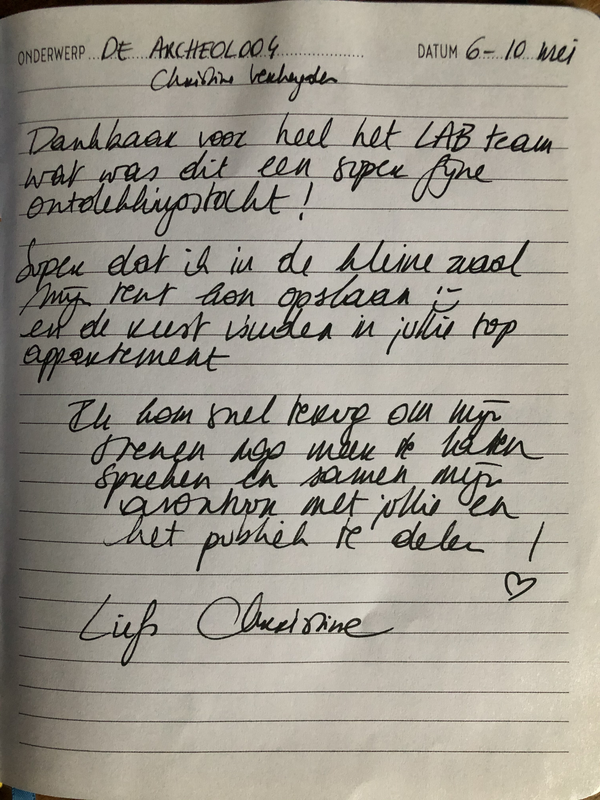 ONDERWERP DE ARCHEOLOOG DATUM 6-10 mei
Christine Verheyden
Dankbaar voor heel het LAB team
wat was dit een super fijne
ontdekkingstocht!
Super dat ik in de kleine zaal
mijn tent kon opslaan :-
en de rust vinden in jullie top
appartement
Ik kom snel terug om mijn
stenen nog meer te laten
spreken en samen mijn
avontuur met jullie en
het publiek te delen !
♡
Liefs Christine